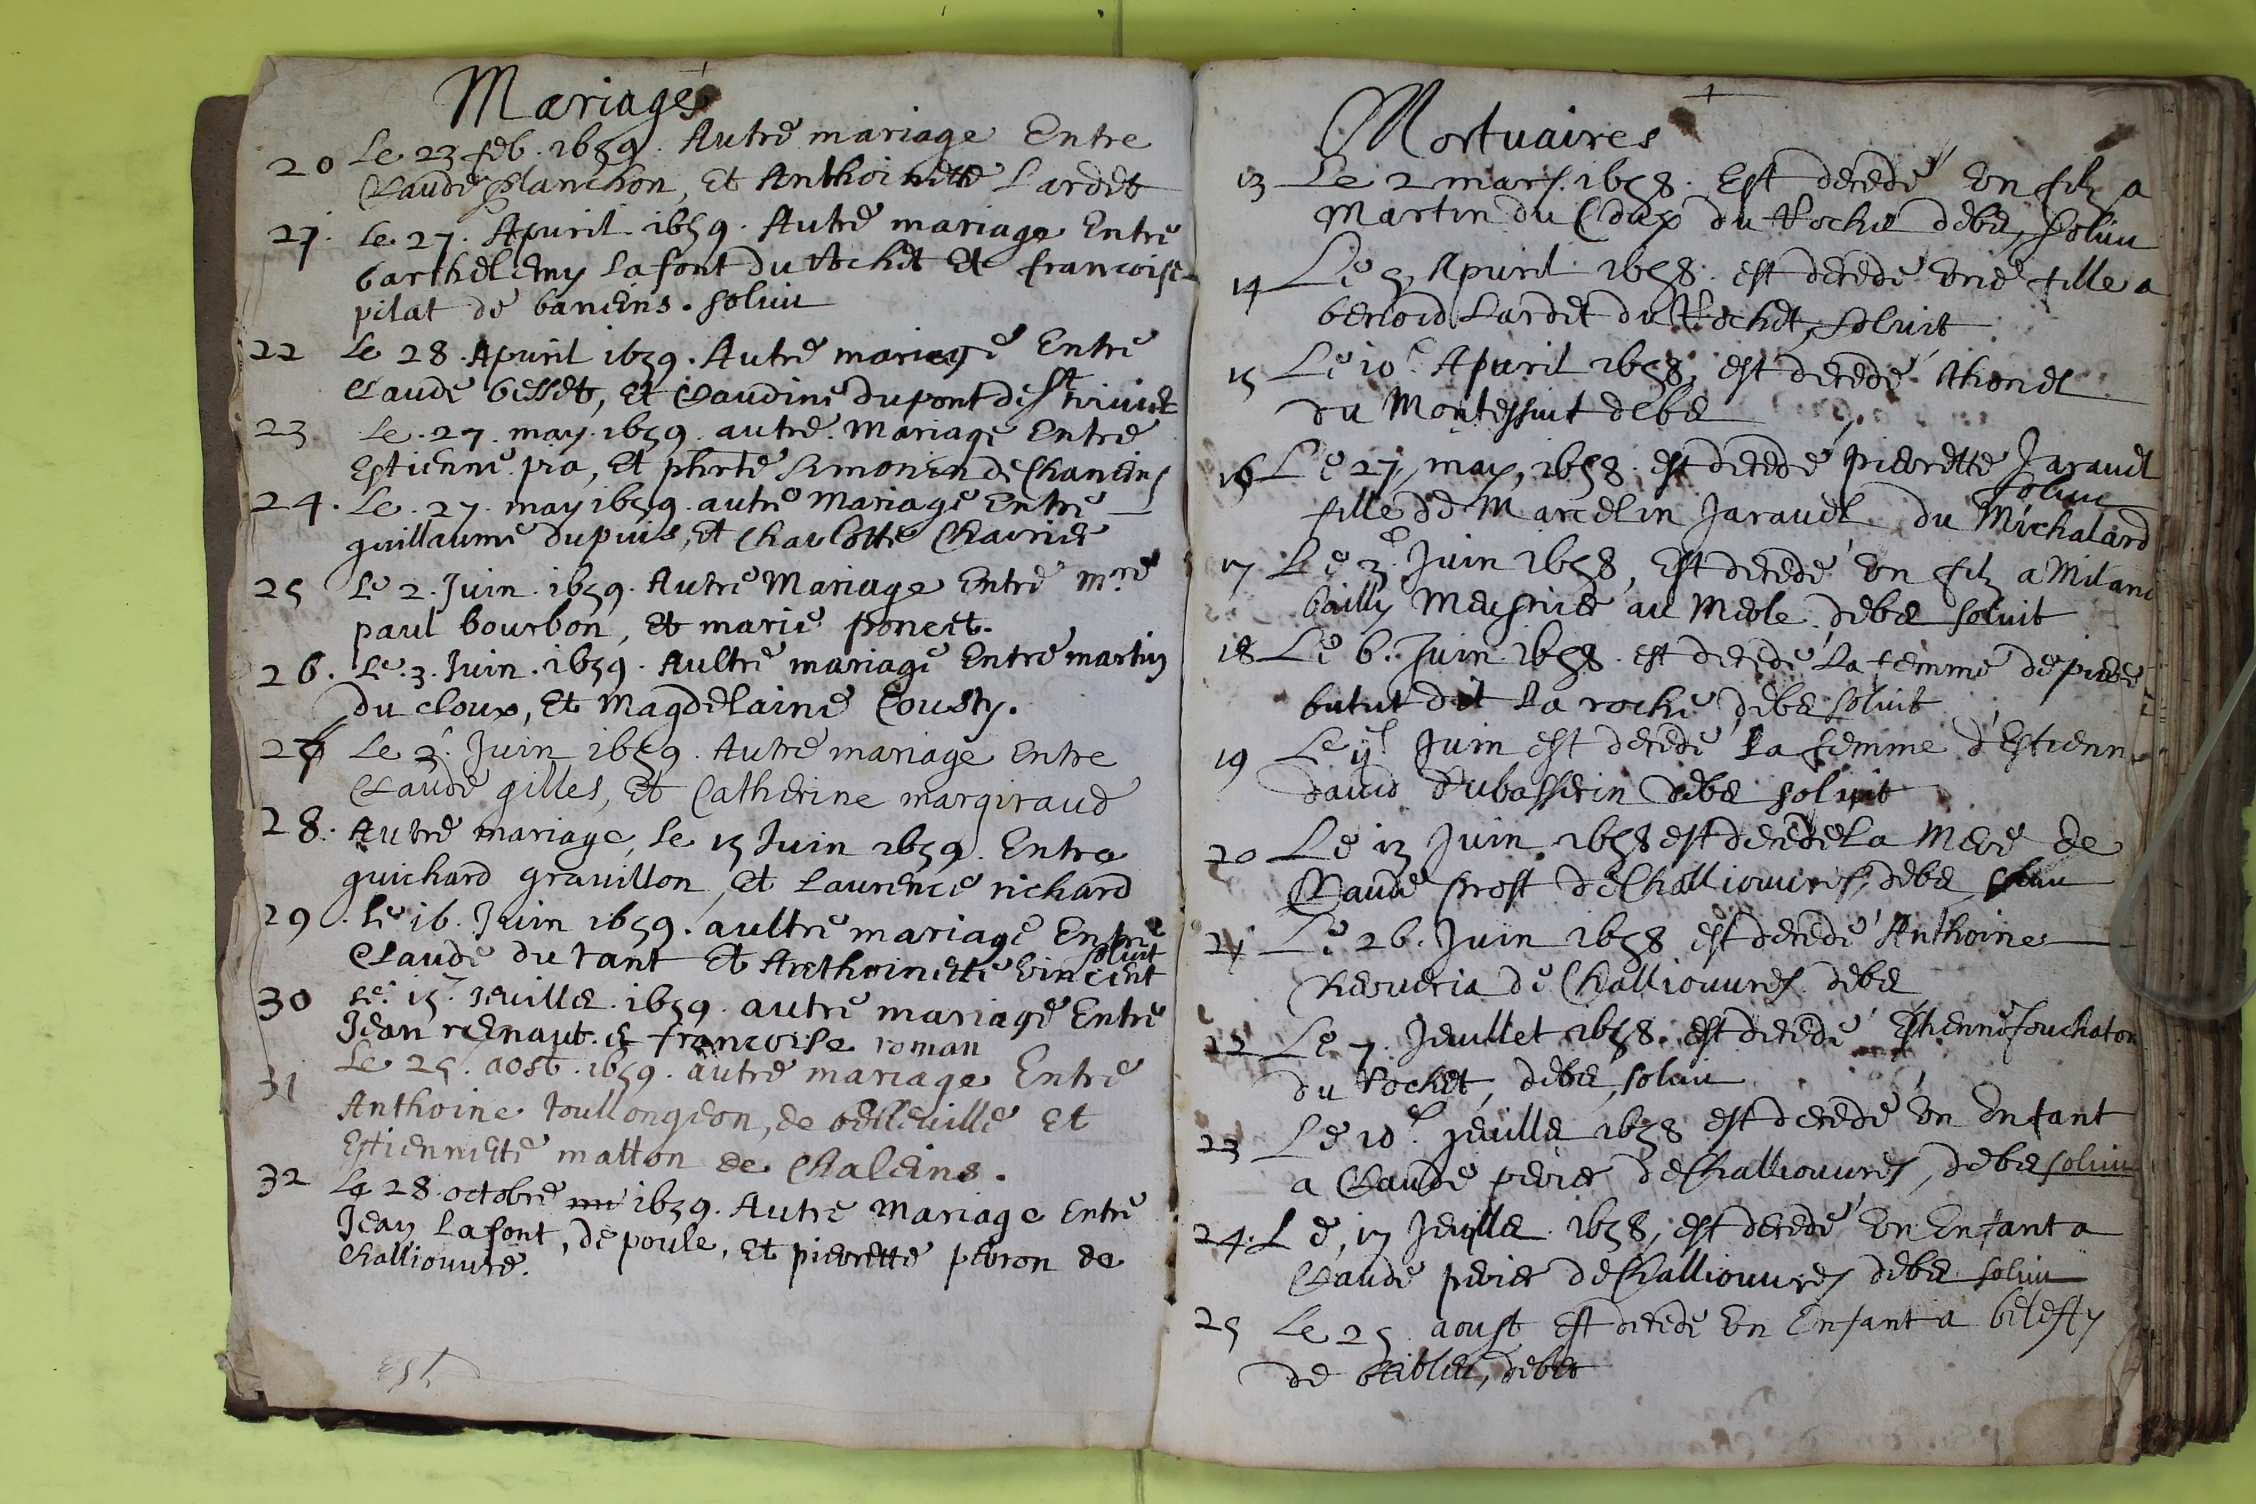 Mariages
20 Le 23 feb. 1659. Autre mariage Entre
Claude planchon, Et Anthoinette Lardet
21. Le 27. Apuril. 1659. Autre mariage Entre
barthelemy Lafont du Rochet Et francoise
pilat de baneins. soluit
22 Le 28. Apuril 1659. Autre mariage Entre
Claude besset, Et Claudine dupont de St triuier
23 Le. 27. may. 1659. autre. Mariage Entre
Estienne pra, Et phrte simonin de Chaneins
24. Le. 27. may 1659. autre Mariage Entre
guillaume dupuis, Et Charlotte Charrier
25 Le 2. Juin. 1659. Autre Mariage Entre mre
paul bourbon, Et marie poncet.
26. Le. 3. Juin. 1659. Aultre mariage Entre martin
du cloux, Et Magdelaine Cousty.
27 Le 3. Juin 1659. Autre mariage Entre
Claude gilles, Et Catherine margiraud
28. Autre mariage, le 15 Juin 1659. Entre
guichard grauillon, Et Laurence richard
29. Le 16. Juin 1659. aultre mariage Entre
soluit
Claude du tant Et Anthoinette vincent
30 Le. 15. Jeuillet. 1659. autre mariage Entre
Jean renaut. & francoise roman
31 Le 25. aost. 1659. autre mariage Entre
Anthoine toullongeon, de belleuille Et
Estiennete matton de Chaleins.
32 Le 28. octobre 1659. Autre Mariage Entre
Jean Lafont, de poule, Et pierrette perron de
Challiouure.
Mortuaires
13 Le 2 mars. 1658. Est decedé vn filz a
Martin du Claux du Rochet debet, soluit
14 Le 5 Apuril. 1658. est decedé vne fille a
benoid Lardet du Rochet, soluit
15 Le 10e Apuril 1658, est decedé thonel
du Montessuit debet
16 Le 27, may, 1658. est decedé pierrette Jarauel
soluit
fille de Marcelin Jarauel du Michalard
17 Le 3e Juin 1658, Est decedé vn filz a Milan
bailly Meusnier au Meole debet soluit
18 Le 6. Juin 1658. est decedé La femme de pierre
butut dit La roche debet soluit
19 Le Juin est decedé la femme d'Estienne
dauid dubasserin debet soluit
20 Le 13 Juin 1658 est decedé La Mere de
Claude prost de Challiouures, debet soluit
21 Le 26. Juin 1658 est decedé Anthoine
Reueria de Challiouures debet
22 Le 7. Jeullet 1658. est decedé Estienne fouchaton
du Rochet, debet, soluit
23 Le 10e Jeuillet 1658 est decedé vn Enfant
a Claude perier de Challiouures, debet soluit
24. Le, 17 Jeuillet 1658, est decedé vn Enfant a
Claude perier de Challiouures debet soluit
25 Le 25. aoust est decedé vn Enfant a
de, debet